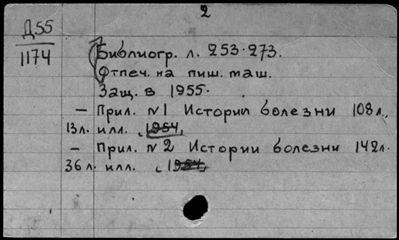 2
Д55
1174
Библиогр. л. 253-273.
Отпеч. на пиш. маш.
Защ. в 1955.
— Прил. №1 Истории болезни 108 л.,
13 л. илл. (1954)
— Прил. №2 Истории болезни 142 л.
36 л. илл. (1954)